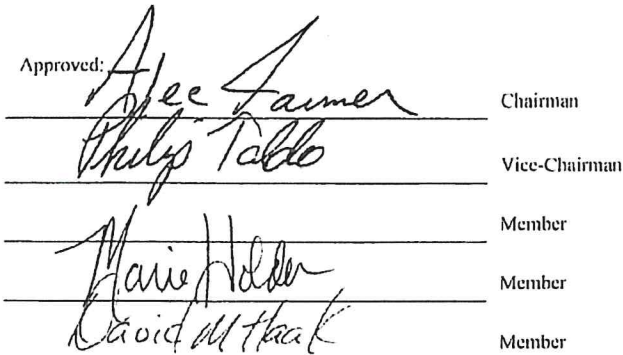 Approved: Alec Farmer Chairman
Philip Taldo Vice-Chairman
Member
Marie Holder Member
David M Haak Member